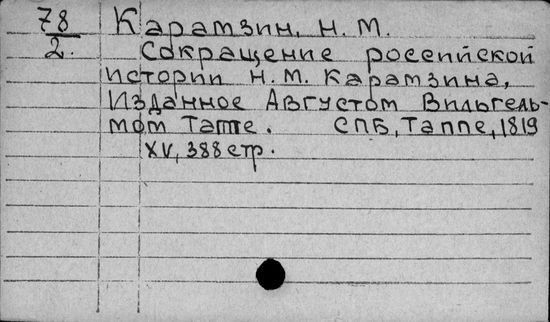 78 Карамзин, Н. М.
2. Сокращение российской
истории Н. М. Карамзина,
Изданное Августом Вильгель-
мом Таппе. СПБ, Таппе, 1819
XV, 388 стр.